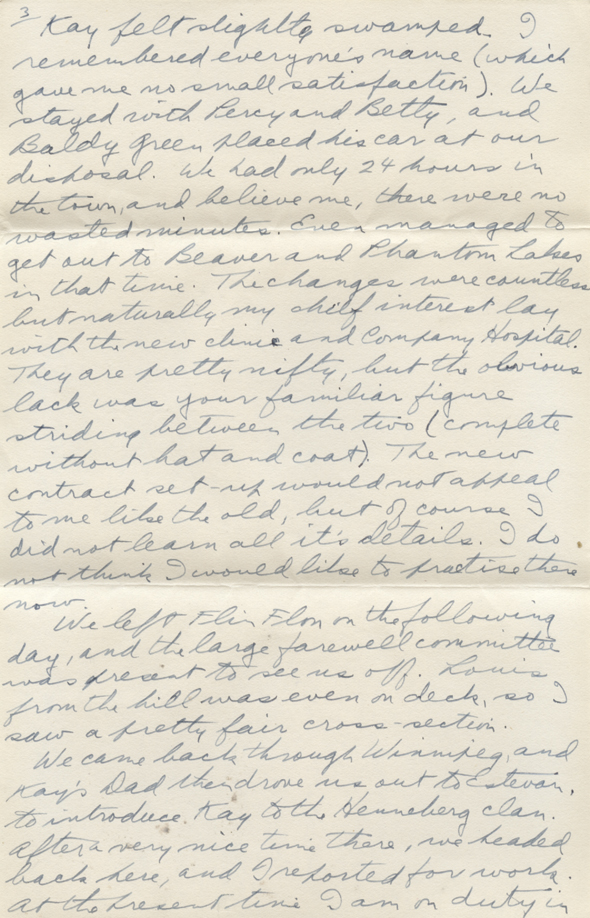 3
Kay felt slightly swamped. I
remembered everyone's name (which
gave me no small satisfaction). We
stayed with Percy and Betty, and
Baldy Green placed his car at our
disposal. We had only 24 hours in
the town, and believe me, there were no
wasted minutes. Even managed to
get out to Beaver and Phantom Lakes
in that time. The changes were countless
but naturally my chief interest lay
with the new clinic and Company Hospital.
They are pretty nifty, but the obvious
lack was your familiar figure
striding between the two (complete
without hat and coat). The new
contract set-up would not appeal
to me like the old, but of course I
did not learn all it's details. I do
not think I would like to practise there
now.
We left Flin Flon on the following
day, and the large farewell committee
was present to see us off. Louis
from the hill was even on deck, so I
saw a pretty fair cross-section.
We came back through Winnipeg, and
Kay's Dad then drove us out to Estevan,
to introduce Kay to the Henneberg clan.
After a very nice time there, we headed
back here, and I reported for work.
At the present time I am on duty in